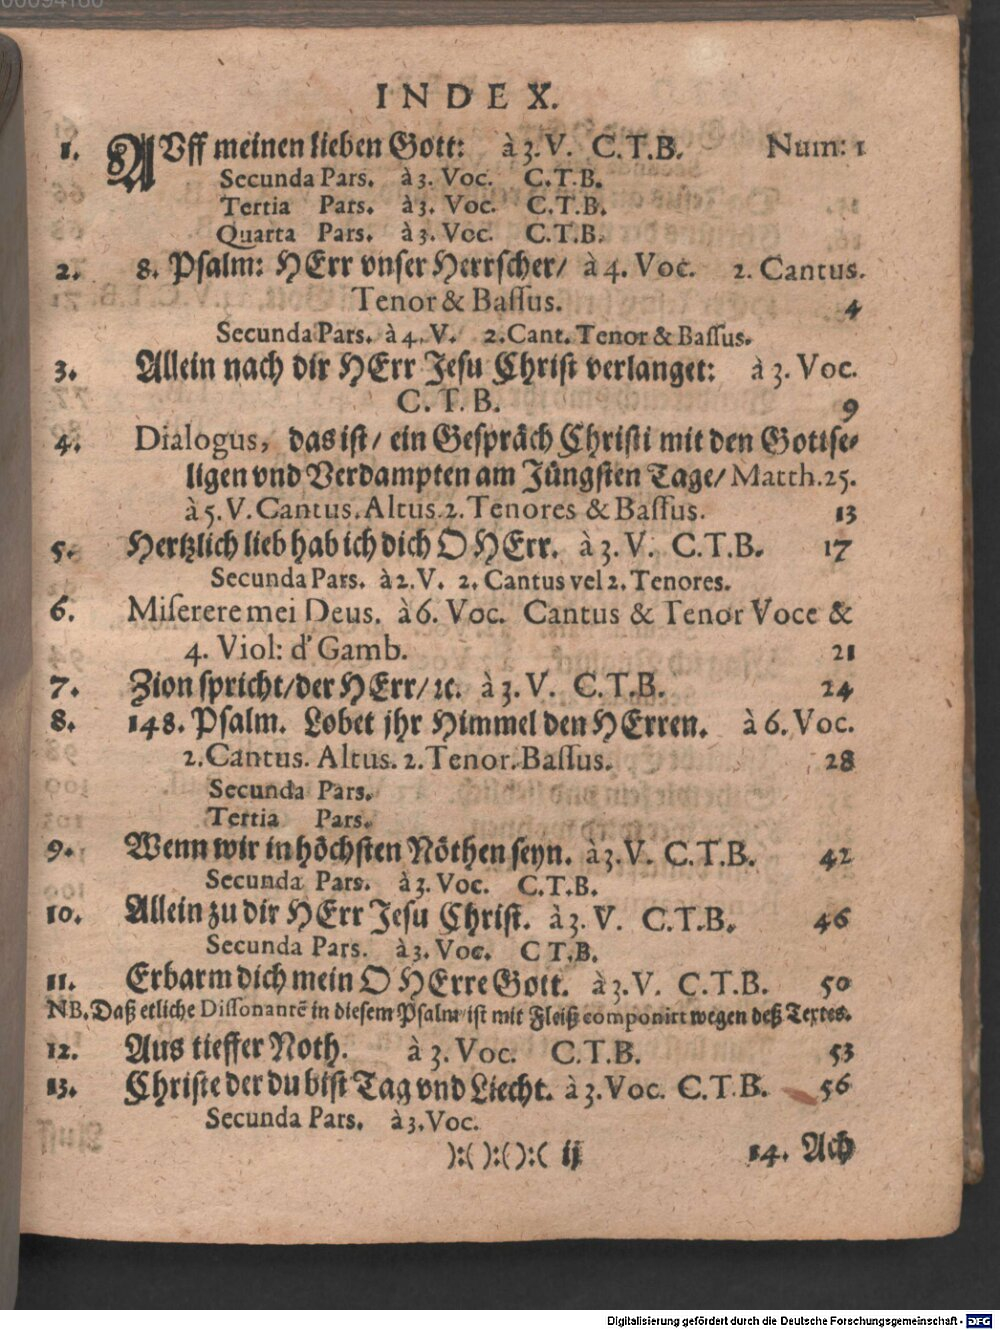 INDEX.
1. AUff meinen lieben Gott: à 3. V. C.T.B. Num: 1
Secunda Pars. à 3. Voc. C.T.B.
Tertia Pars. à 3. Voc. C.T.B.
Quarta Pars. à 3. Voc. C.T.B.
2. 8. Psalm: HErr vnser Herrscher/ à 4. Voc. 2. Cantus.
Tenor & Baſſus. 4
Secunda Pars. à 4. V. 2. Cant. Tenor & Baſſus.
3. Allein nach dir HErr Jeſu Chriſt verlanget: à 3. Voc.
C. T. B. 9
4. Dialogus, das iſt/ ein Geſpräch Chriſti mit den Gottſe-
ligen vnd Verdampten am Jüngſten Tage/ Matth. 25.
à 5. V. Cantus. Altus. 2. Tenores & Baſſus. 13
5. Hertzlich lieb hab ich dich O HErr. à 3. V. C.T.B. 17
Secunda Pars. à 2. V. 2. Cantus vel 2. Tenores.
6. Miſerere mei Deus. à 6. Voc. Cantus & Tenor Voce &
4. Viol: d' Gamb. 21
7. Zion ſpricht/ der HErr/ ꝛc. à 3. V. C.T.B. 24
8. 148. Pſalm. Lobet jhr Himmel den HErren. à 6. Voc.
2. Cantus. Altus. 2. Tenor. Baſſus. 28
Secunda Pars.
Tertia Pars.
9. Wenn wir in höchſten Nöthen ſeyn. à 3. V. C.T.B. 42
Secunda Pars. à 3. Voc. C.T.B.
10. Allein zu dir HErr Jeſu Chriſt. à 3. V. C.T.B. 46
Secunda Pars. à 3. Voc. C T.B.
11. Erbarm dich mein O HErre Gott. à 3. V. C.T.B. 50
NB. Daß etliche Diſſonantē in dieſem Pſalm iſt mit Fleiß componirt wegen deß Textes.
12. Aus tieffer Noth. à 3. Voc. C.T.B. 53
13. Chriſte der du biſt Tag vnd Liecht. à 3. Voc. C.T.B. 56
Secunda Pars. à 3. Voc.
):( ):( ):( ij 14. Ach
Digitalisierung gefördert durch die Deutsche Forschungsgemeinschaft - DFG